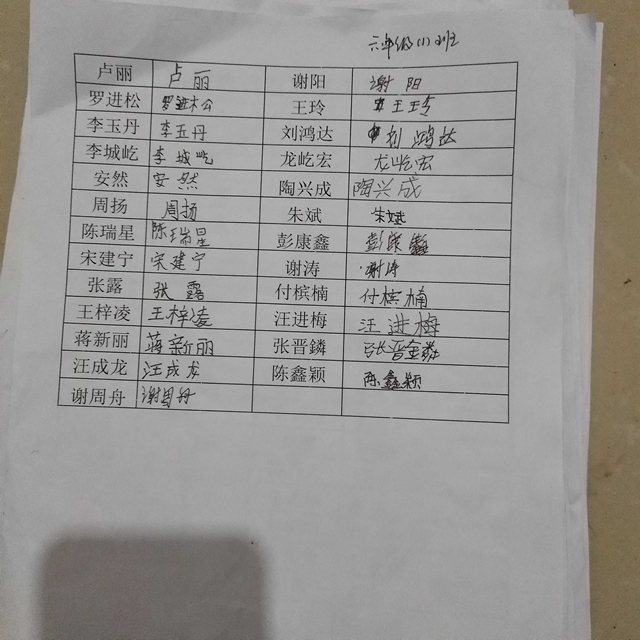 六年级(1)班
卢丽 卢丽 谢阳 谢阳
罗进松 罗进松 王玲 王玲
李玉丹 李玉丹 刘鸿达 刘鸿达
李城屹 李城屹 龙屹宏 龙屹宏
安然 安然 陶兴成 陶兴成
周扬 周扬 朱斌 朱斌
陈瑞星 陈瑞星 彭康鑫 彭康鑫
宋建宁 宋建宁 谢涛 谢涛
张露 张露 付槟楠 付槟楠
王梓凌 王梓凌 汪进梅 汪进梅
蒋新丽 蒋新丽 张晋鏻 张晋鏻
汪成龙 汪成龙 陈鑫颖 陈鑫颖
谢周舟 谢周舟